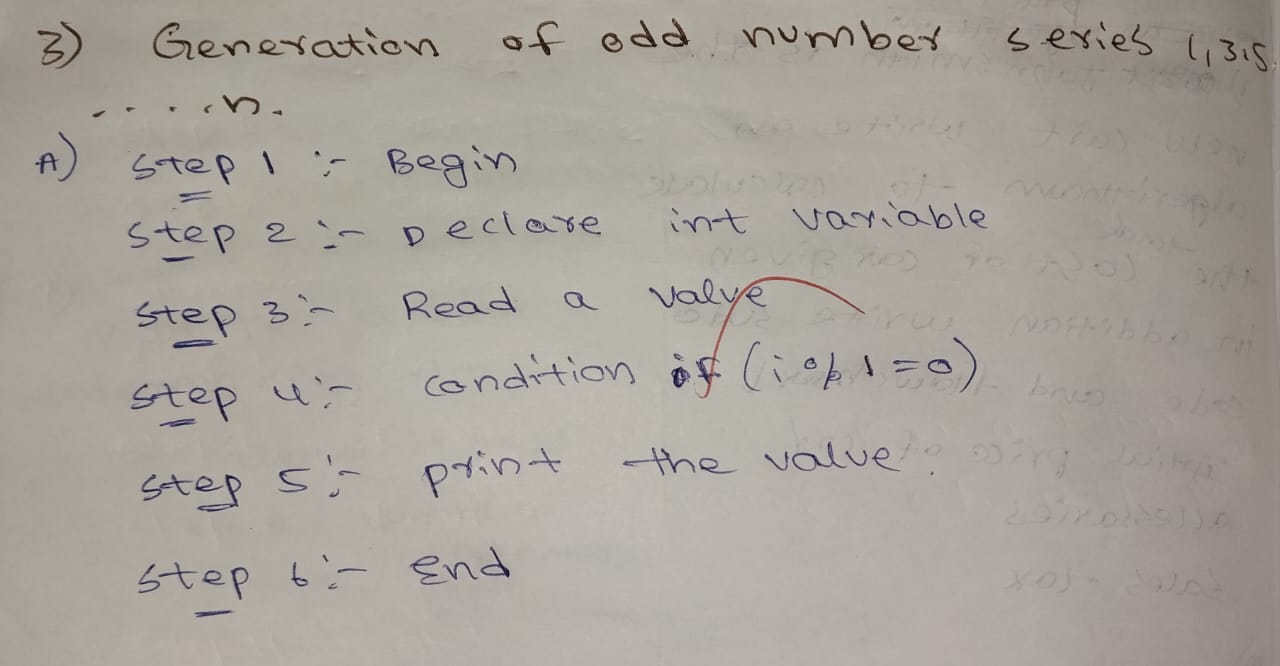 3) Generation of odd number series 1,3,5
.....n.
A) Step 1 :- Begin
Step 2 :- Declare int variable
Step 3 :- Read a value
Step 4 :- condition if (i % 1 = 0)
Step 5 :- print the value.
Step 6 :- End